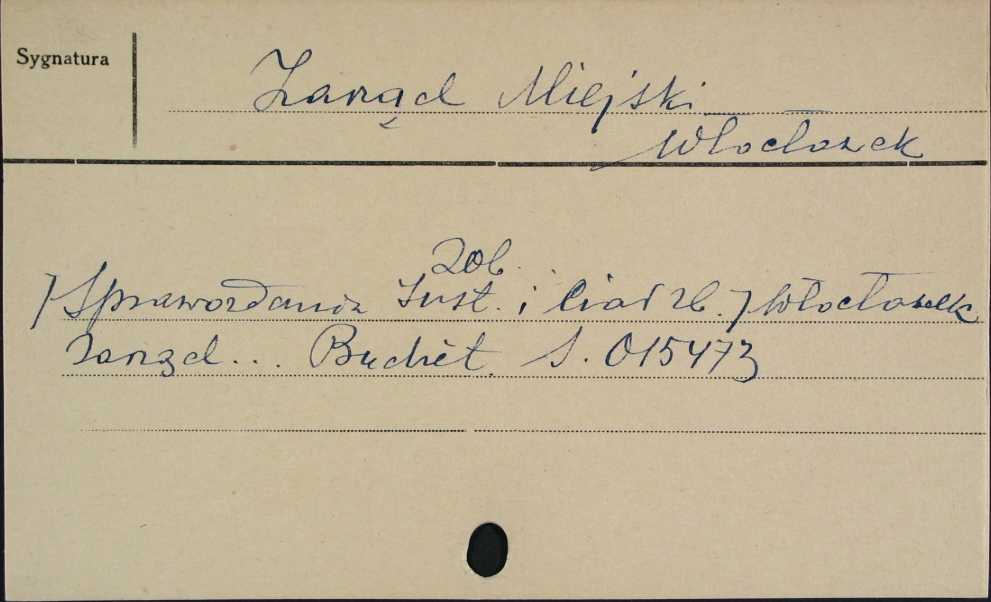 Sygnatura
Zarząd Miejski
Włocławek
zob.
/Sprawozdania Inst. i Ciał zb./ Włocławek
Zarząd... Budżet. S. 015473